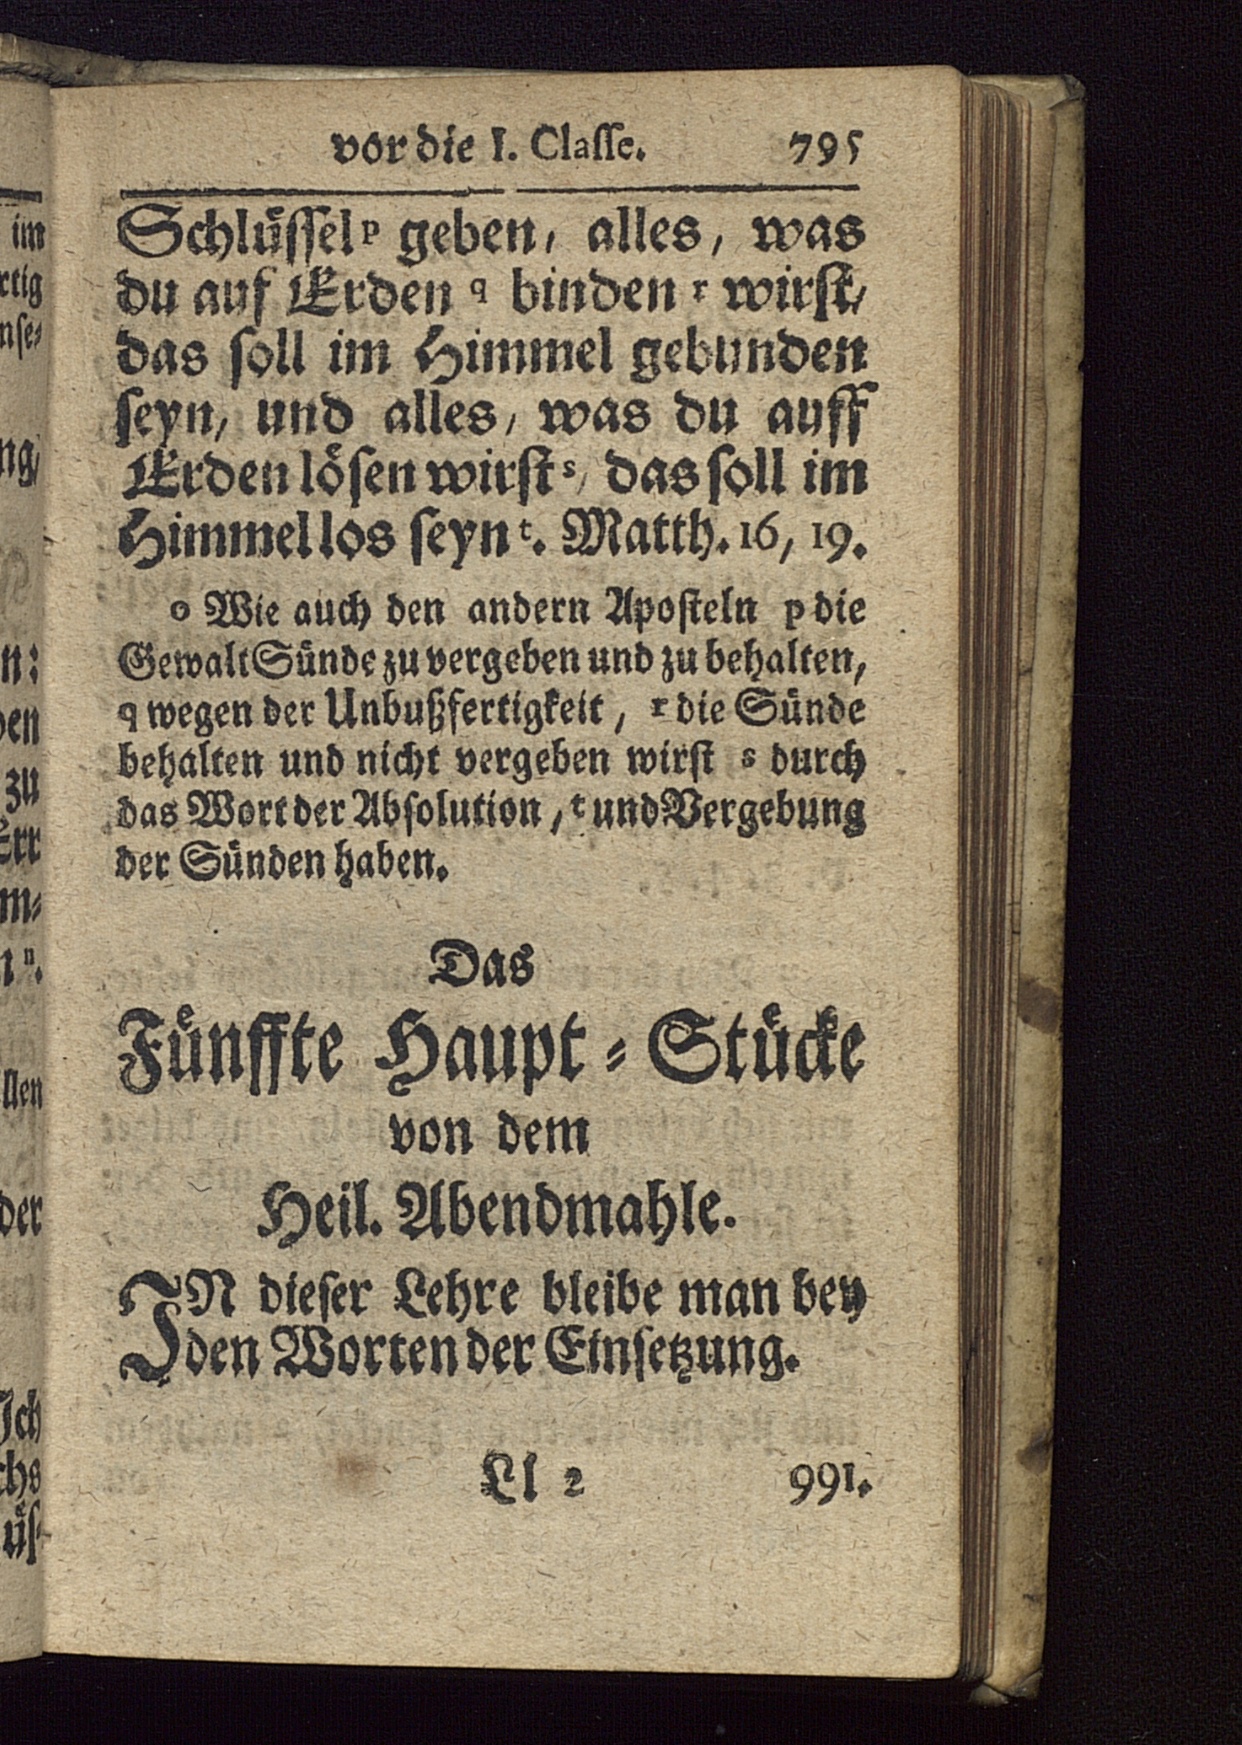 vor die I. Classe. 795
Schlüssel p geben, alles, was
du auf Erden q binden r wirst,
das soll im Himmel gebunden
seyn, und alles, was du auff
Erden lösen wirst s, das soll im
Himmel los seyn t. Matth. 16, 19.
o Wie auch den andern Aposteln p die
Gewalt Sünde zu vergeben und zu behalten,
q wegen der Unbußfertigkeit, r die Sünde
behalten und nicht vergeben wirst s durch
das Wort der Absolution, t und Vergebung
der Sünden haben.
Das
Fünffte Haupt-Stücke
von dem
Heil. Abendmahle.
IN dieser Lehre bleibe man bey
den Worten der Einsetzung.
Ll 2 991.